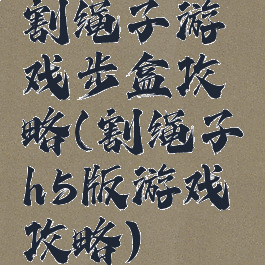 割绳子游
戏步盒攻
略(割绳子
h5版游戏
攻略)